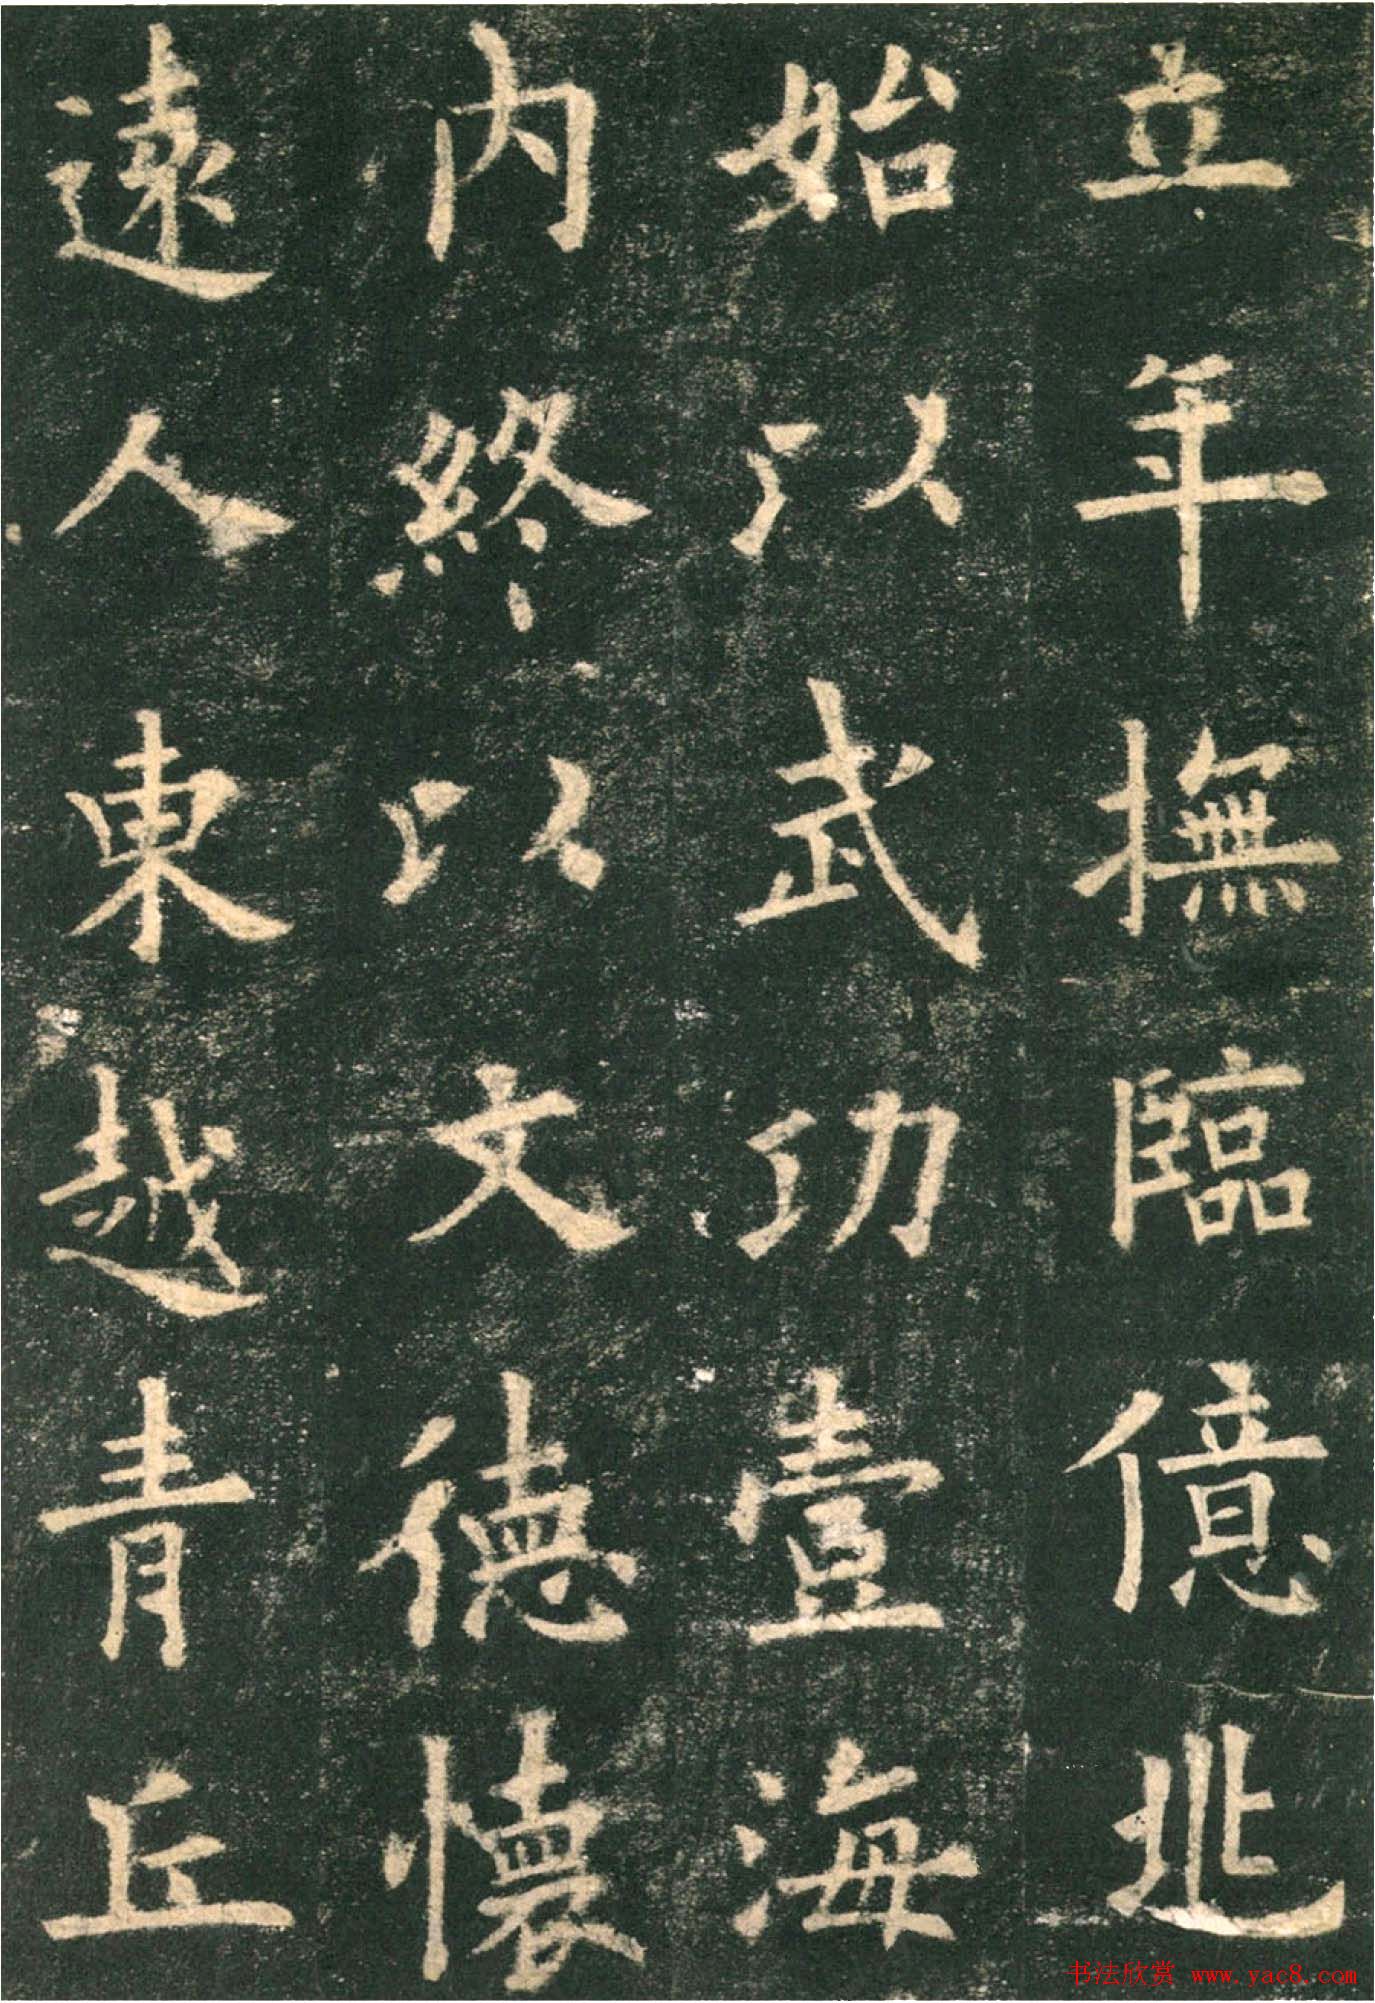 立年撫臨億兆
始以武功壹海
内終以文德懷
遠人東越青丘
书法欣赏 www.yac8.com